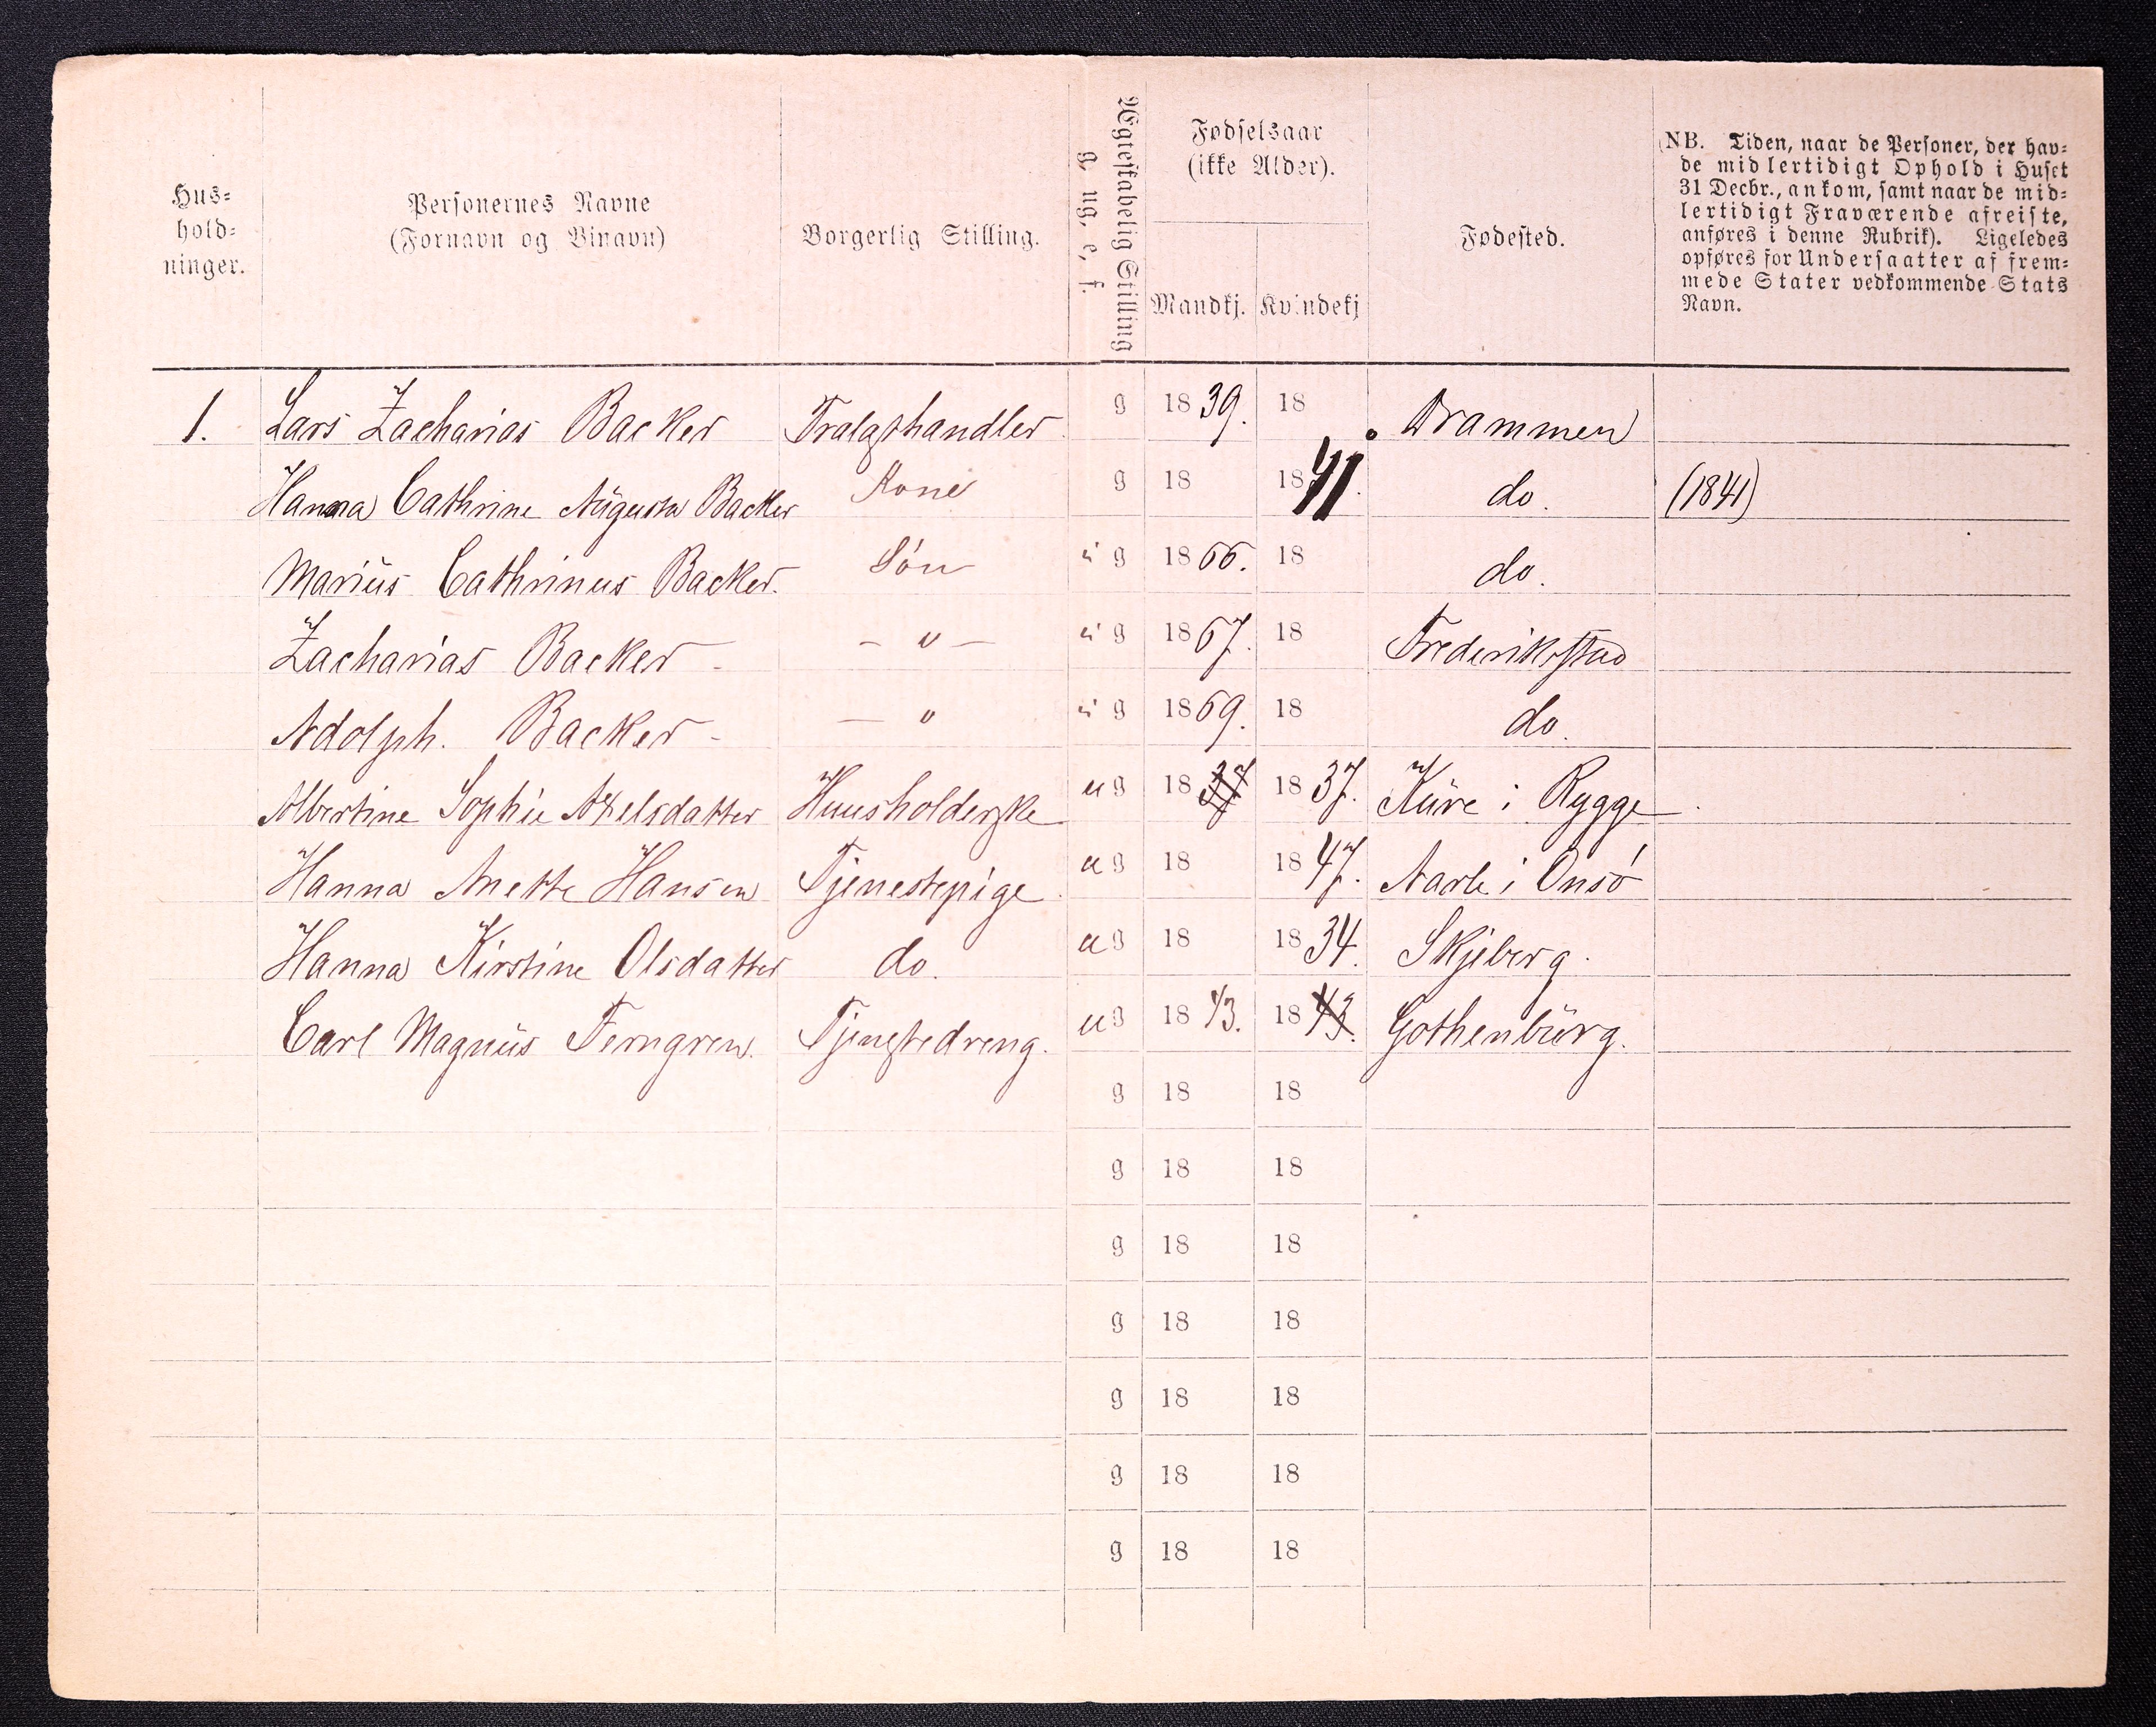 Hus-
hold-
ninger.
Personernes Navne
(Fornavn og Binavn)
Borgerlig Stilling.
Ægteskabelig Stilling
g, ug, e, f.
Fødselsaar
(ikke Alder).
Mandkj. Kvindekj
Fødested.
(NB. Tiden, naar de Personer, der hav-
de midlertidigt Ophold i Huset
31 Decbr., ankom, samt naar de mid-
lertidigt Fraværende afreiste,
anføres i denne Rubrik). Ligeledes
opføres for Undersaatter af frem-
mede Stater vedkommende Stats
Navn.
1. Lars Zacharias Backer Tralasthandler g 1839. 18 Drammen
Hanna Cathrine Augusta Backer Kone g 18 1841. do. (1841)
Marius Cathrinus Backer. Sön u g 1866. 18 do.
Zacharias Backer - — " — u g 1867. 18 Frederikstad
Adolph. Backer - — " u g 1869. 18 do.
Albertine Sophie Axelsdatter Huusholderske u g 1837 1837. Kure i Rygge
Hanna Anette Hansen Tjenestepige u g 18 1847. i Onsö
Hanna Kirstine Olsdatter do. u g 18 1834. Skjeberg.
Carl Magnus Ferngren. Tjenestedreng. u g 1843. 1843. Gothenburg.
g 18 18
g 18 18
g 18 18
g 18 18
g 18 18
g 18 18
g 18 18